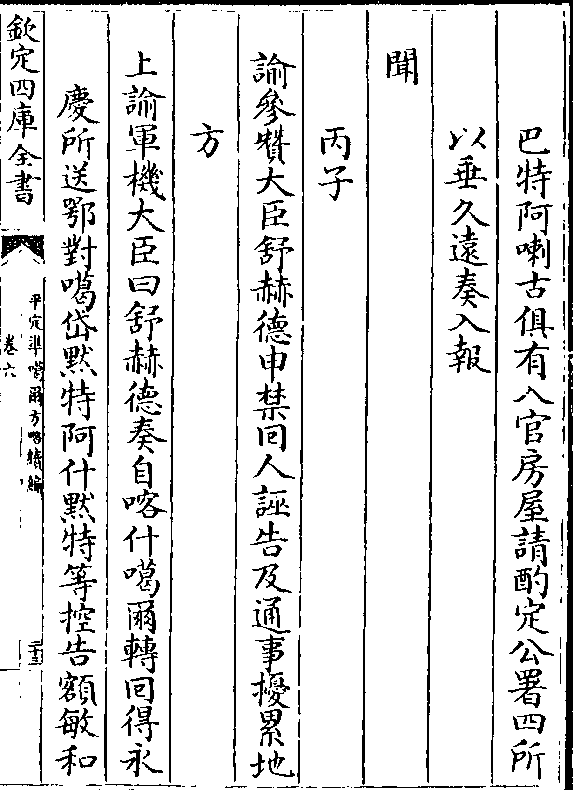 巴特阿喇古俱有入官房屋請酌定公署四所
以垂久遠奏入報
聞
丙子
諭參贊大臣舒赫德申禁回人誣告及通事擾累地
方
上諭軍機大臣曰舒赫德奏自喀什噶爾轉回得永
慶所送鄂對噶岱默特阿什默特等控告額敏和
欽定四庫全書
平定準噶爾方略續編
卷六
二十三